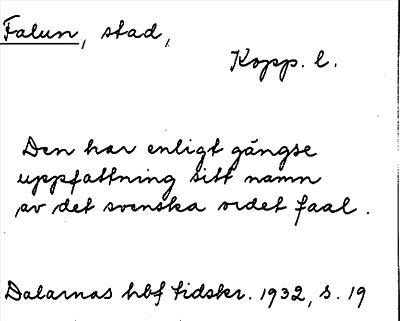 Falun, stad,
Kopp. l.
Den har enligt gängse
uppfattning sitt namn
av det svenska ordet faal.
Dalarnas hbf tidskr. 1932, s. 19